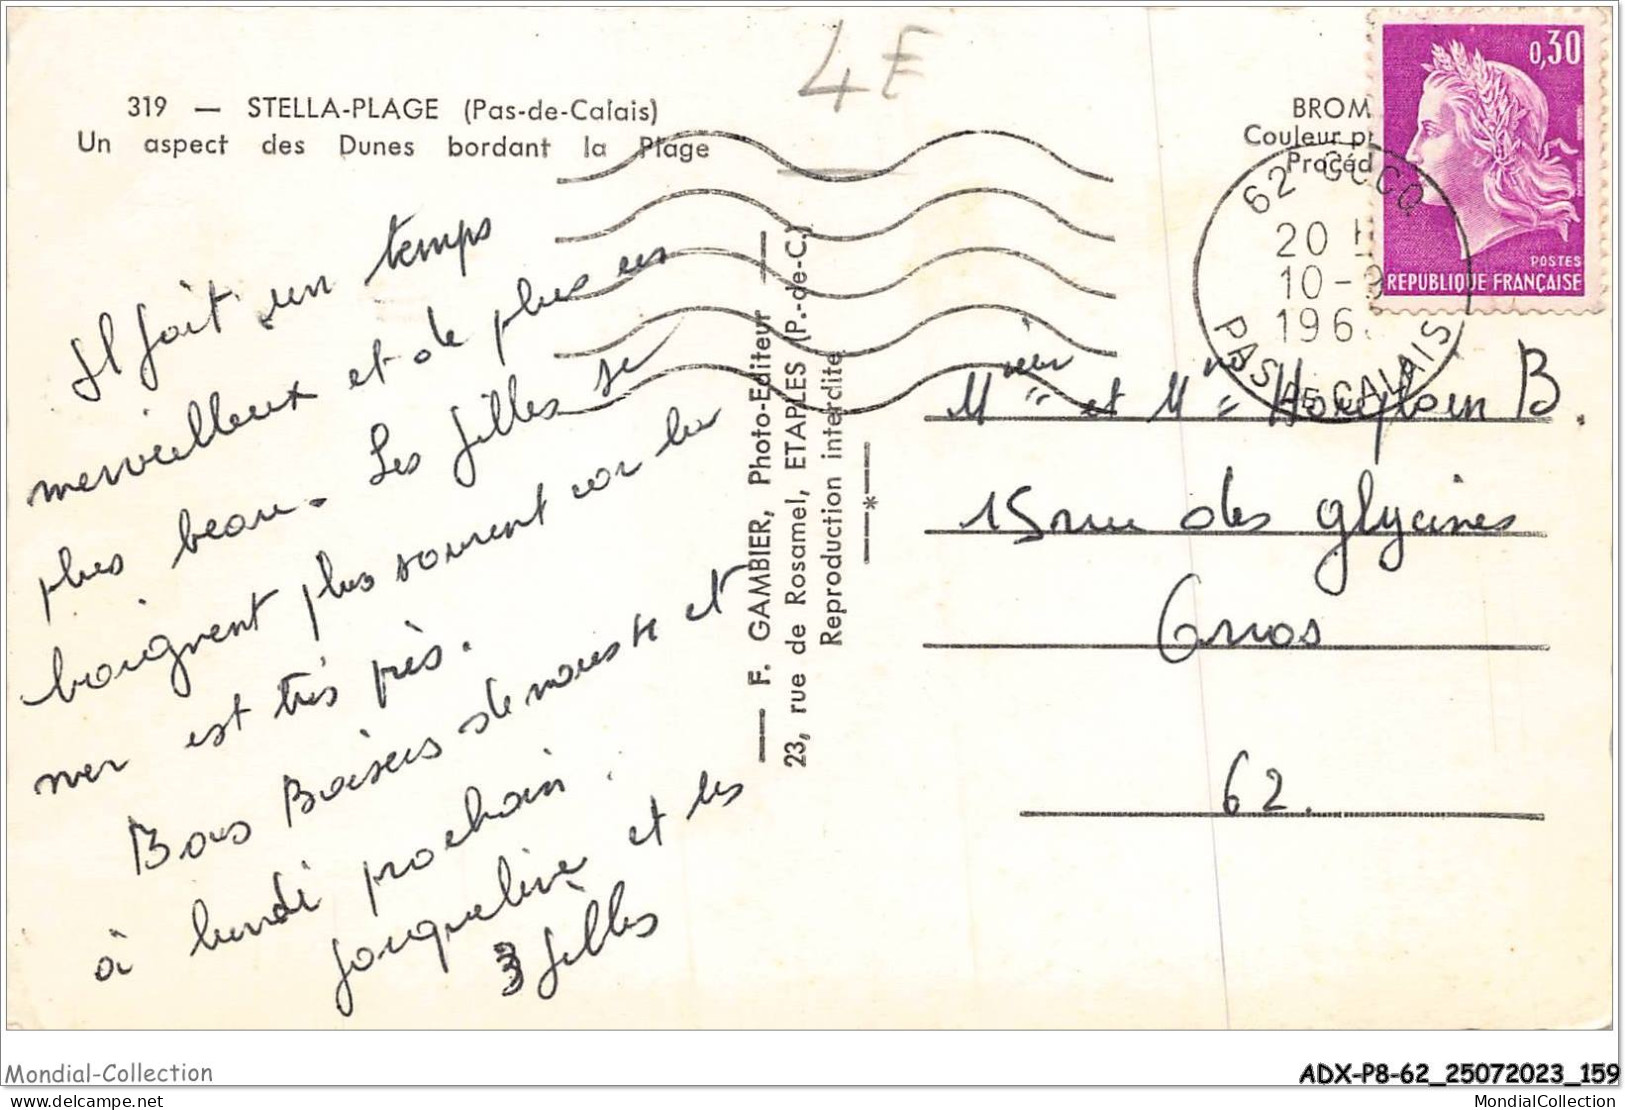 4 F
319 — STELLA-PLAGE (Pas-de-Calais)
Un aspect des Dunes bordant la Plage
BROM
Couleur pr
Procéd
0,30
POSTES
REPUBLIQUE FRANÇAISE
62 CUCQ
20 H
10-9
196
PAS DE CALAIS
Il fait un temps
merveilleux et de plus en
plus beau. Les filles se
baignent plus souvent car la
mer est très près.
Bons Baisers de nous et
à lundi prochain.
Jacqueline et les
3 filles
— F. GAMBIER, Photo-Editeur —
23, rue de Rosamel, ETAPLES (P.-de-C.)
Reproduction interdite
—*—
et B.
15 rue des glycines
62.
Mondial-Collection
ADX-P8-62_25072023_159
delcampe.net
MondialCollection